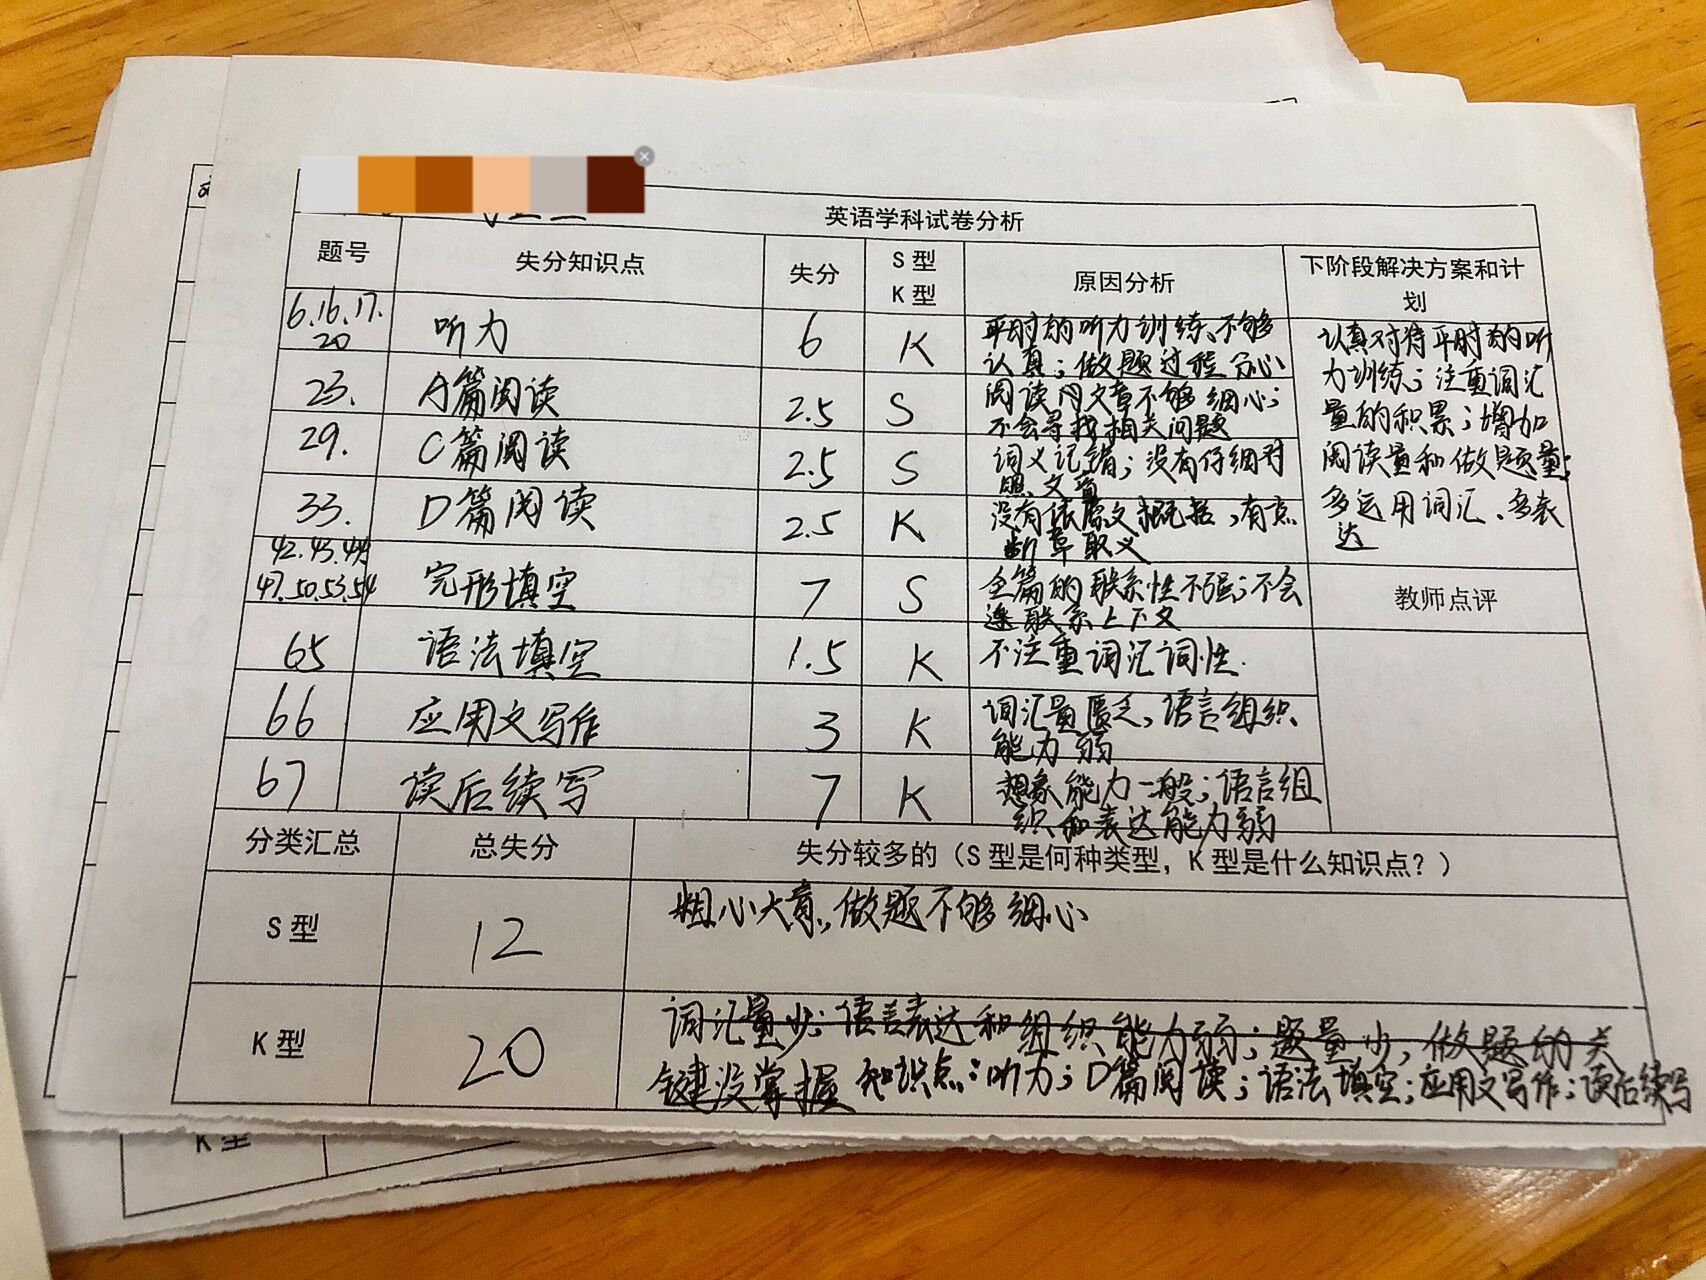 英语学科试卷分析
题号 失分知识点 失分 S型 K型 原因分析 下阶段解决方案和计划
6.16.17.
20
听力 6 K
平时的听力训练不够
认真；做题过程分心
23. A篇阅读 2.5 S
阅读时文章不够细心；
不会寻找相关问题
29. C篇阅读 2.5 S
词义记错；没有仔细对
照文章
33. D篇阅读 2.5 K
没有依原文概括，有点
断章取义
42.43.44.
47.50.53.54
完形填空 7 S
全篇的联系性不强；不会
联系上下文
65 语法填空 1.5 K
不注重词汇词性.
66 应用文写作 3 K
词汇量匮乏，语言组织
能力弱
67 读后续写 7 K
想象能力一般；语言组
织和表达能力弱
认真对待平时的听
力训练；注重词汇
量的积累；增加
阅读量和做题量；
多运用词汇、多表
达
教师点评
分类汇总 总失分 失分较多的（S型是何种类型，K型是什么知识点？）
S型 12 粗心大意，做题不够细心
K型 20
词汇量少；语言表达和组织能力弱；题量少，做题的关
键没掌握 知识点：听力；D篇阅读；语法填空；应用文写作；读后续写
K型